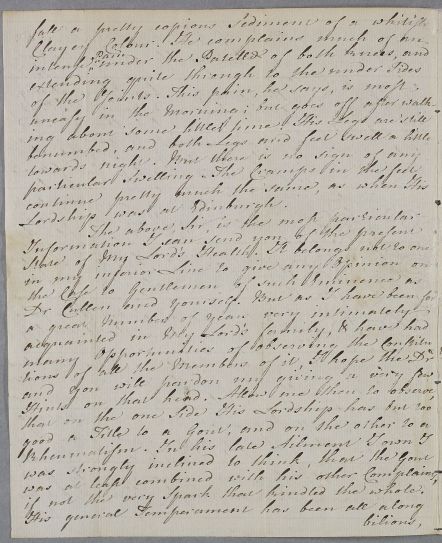 fall a pretty copious Sediment of a whitish
Clayey Colour. He complains much of an
intense pain under the Patellæ of both knees, and
extending quite through to the under sides
of the Joints. This pain, he says, is most
uneasy in the Morning; but goes off after walk
ing about some little time. His Legs are still
benumbed, and both Legs and feet swell a little
towards night. But there is no sign of any
particular Swelling. The Cramps in the feet
continue pretty much the same, as when His
Lordship was at Edinburgh.
The above, Sir, is the most particular
Information I can send you of the present
State of My Lord's Health. It belongs not to one
in my inferior Line to give any Opinion on
the Case to Gentlemen of such Eminence as
Dr Cullen and yourself. But as I have been for
a great Number of years very intimately
acquainted in My Lord's family, & have had
many Opportunities of observing the Constitu
tions of all the Members of it, I hope the Dr
and you will pardon my giving a very few
Hints on that head. Allow me then to observe,
that on the one Side His Lordship has but too
good a Title to a Gout, and on the other to a
Rheumatism. In his late Ailment I own I
was strongly inclined to think, that the Gout
was at least combined with his other Complaints,
if not the very Spark that kindled the whole.
His general Temperament has been all along
bilious,